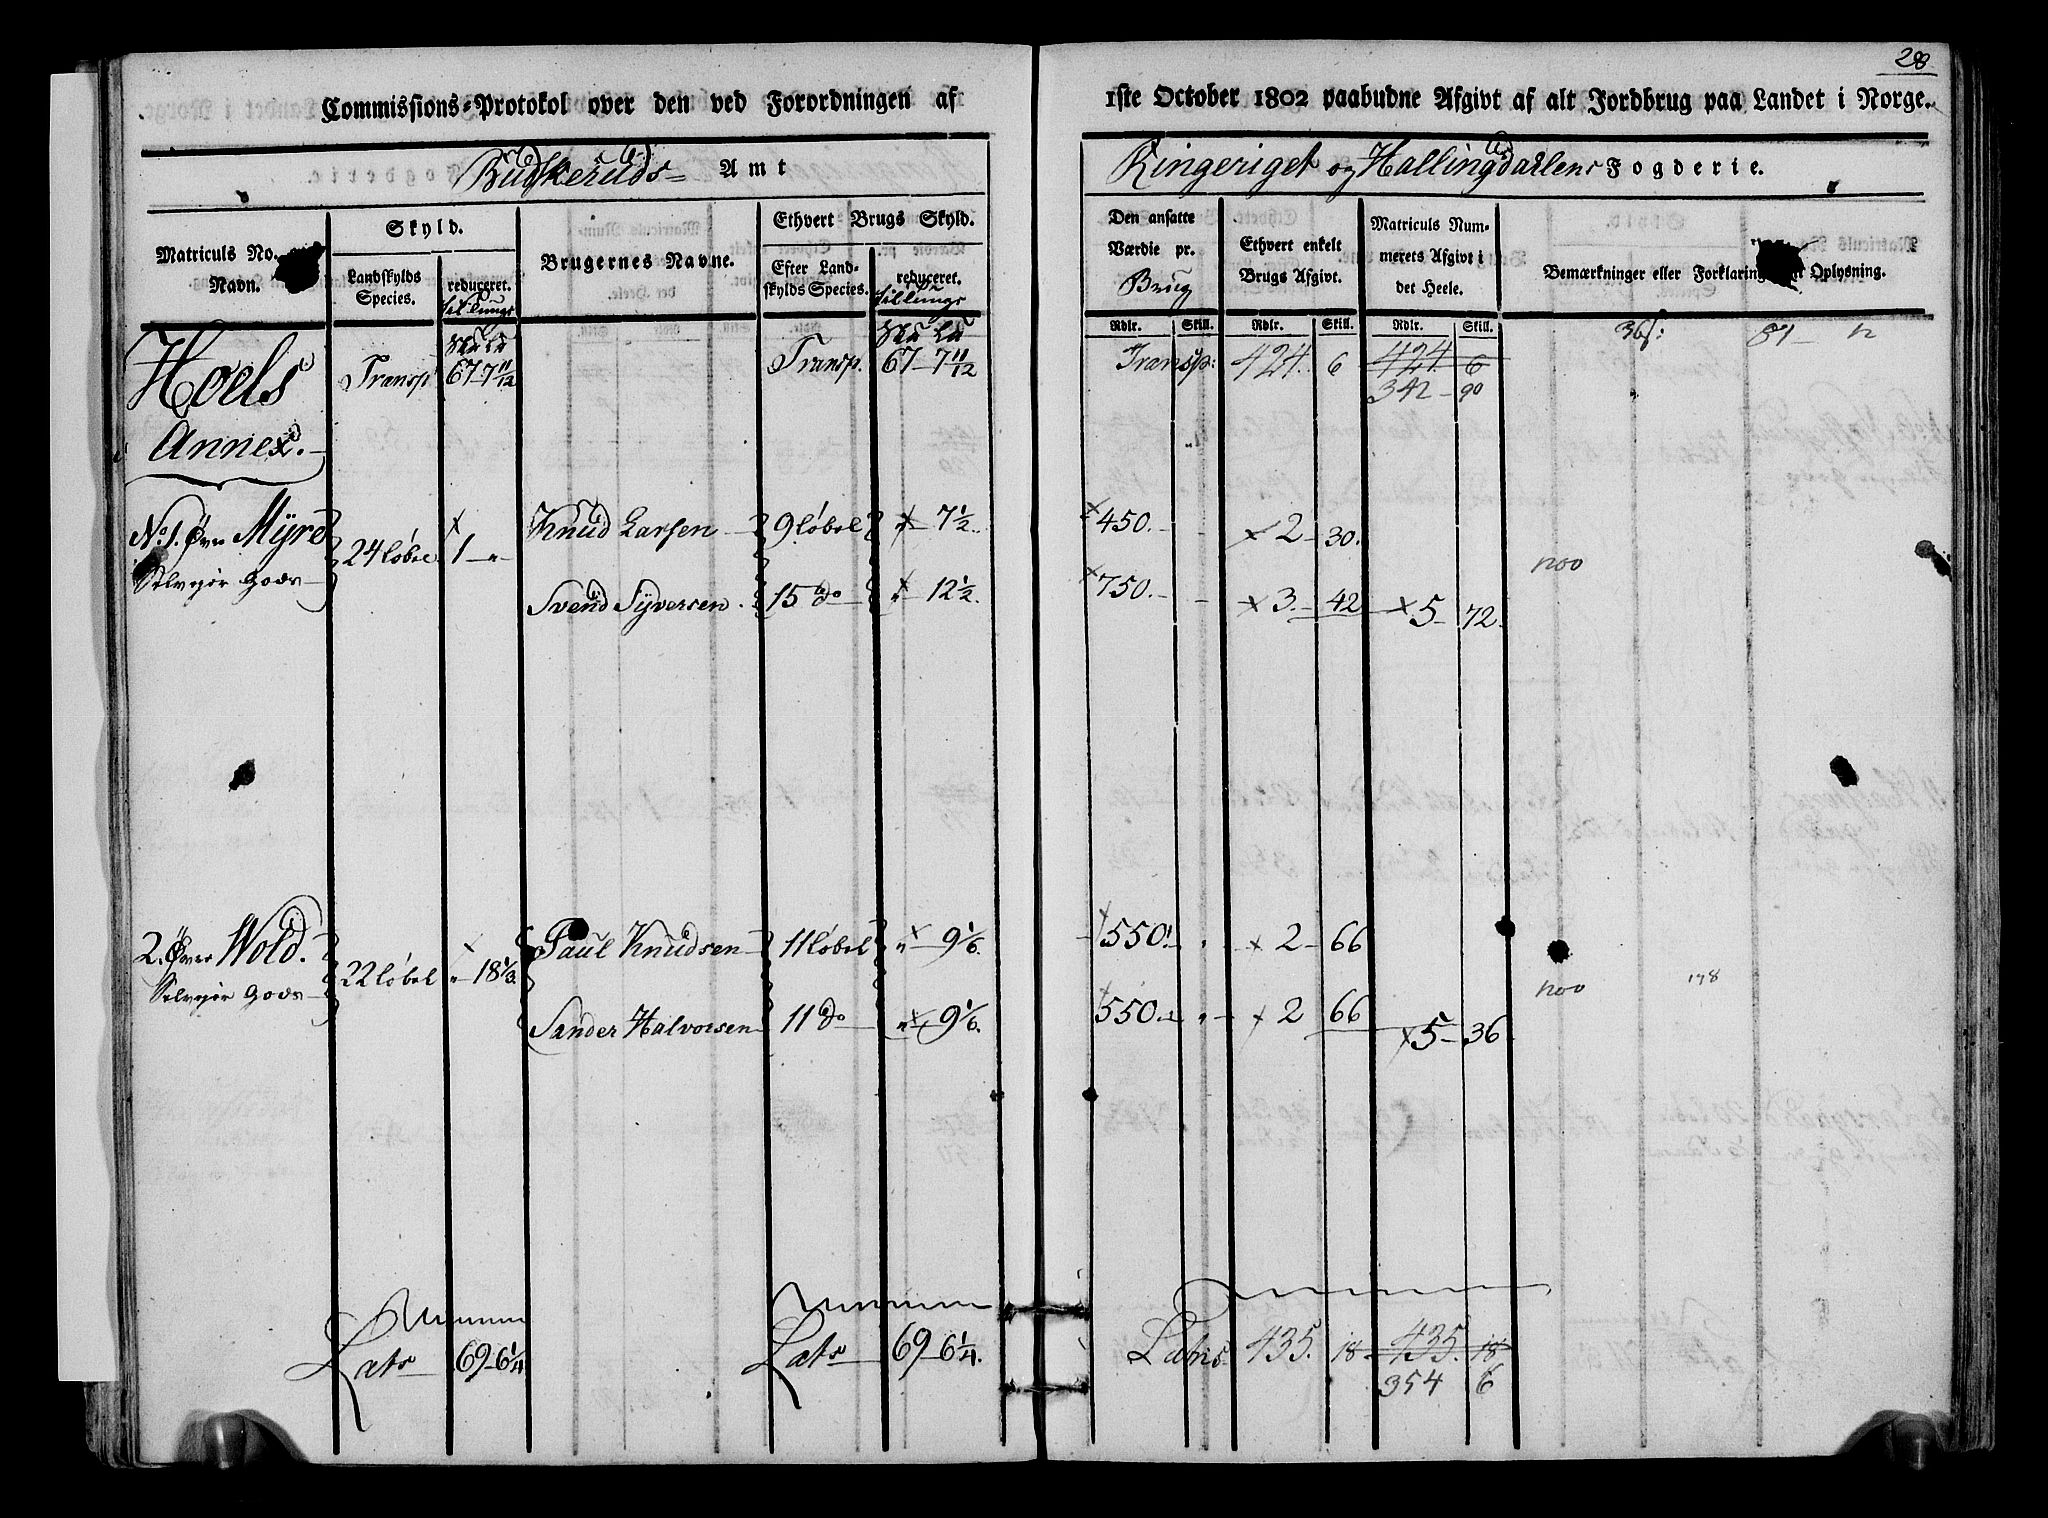 28
Commissions-Protokol over den ved Forordningen af 1ste October 1802 paabudne Afgivt af alt Jordbrug paa Landet i Norge.
Budskeruds Amt
Ringeriget og Hallingdalens Fogderie.
Matriculs No. Navn.
Skyld.
Landskylds Species.
reduceret.
Brugernes Navne.
Ethvert Brugs Skyld.
Efter Landskylds Species.
reduceret.
Den ansatte Værdie pr. Brug
Ethvert enkelt Brugs Afgivt.
Matriculs Nummerets Afgivt i det Heele.
Bemærkninger eller Forklaring Oplysning.
Rdlr. Skill. Rdlr. Skill. Rdlr. Skill.
Hoels Annex.
Transp 67 7 11/12 Transp. 67 7 11/12 Transp: 424. 6 424 6
342 90
No. 1. Øvre Myre 24 løbel 1 Knud Larsen 9 løbel 7 1/2 450. 2 30.
Selveyer Gods
Svend Syversen. 15 do 12 1/2 750. 3. 42 5 72
1200
2. Øvre Wold. 22 løbel 18 1/3 Paul Knudsen 11 løbel 9 1/6. 550. 2 66
Selveyer Gods
Sander Halvorsen 11 do 9 1/6. 550. 2 66 5 36
Lats 69 6 1/4 Lats 69 6 1/4. Latus 435. 18 435. 18
354 6